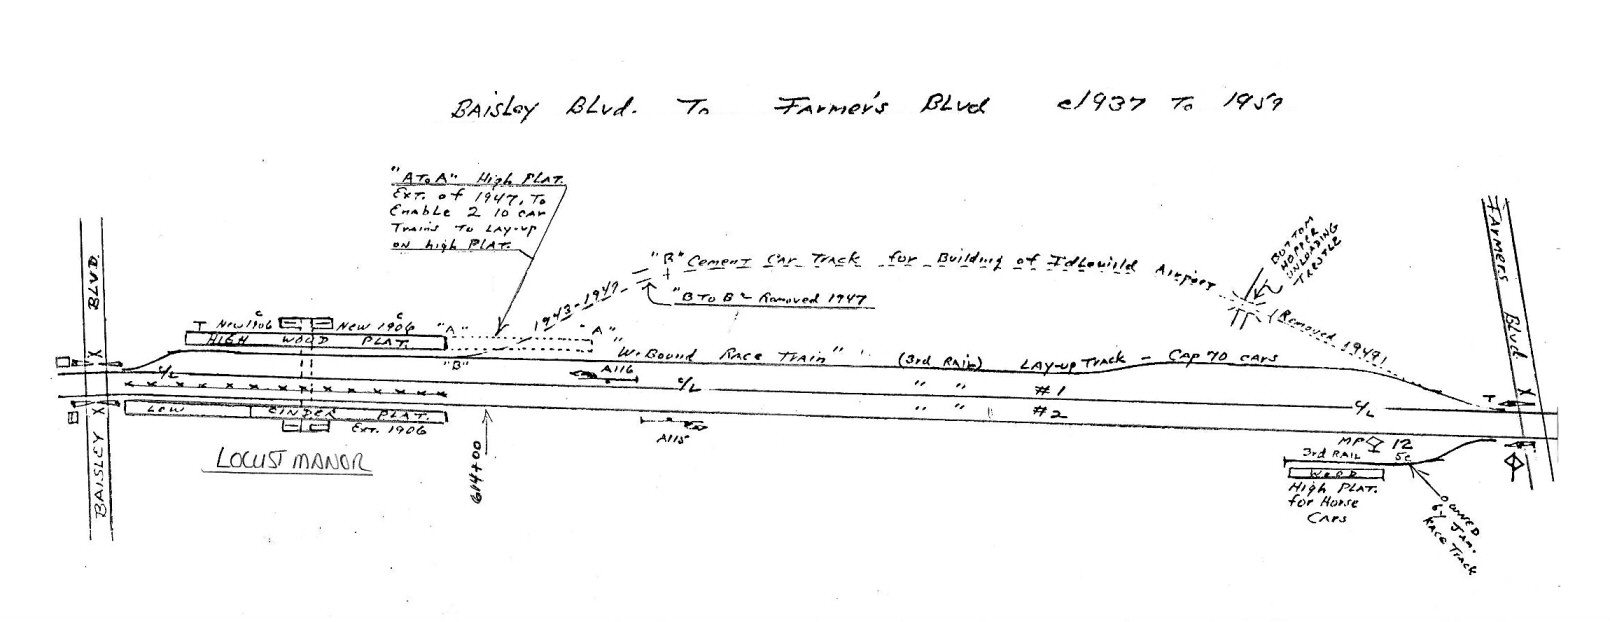 BAisLey BLvd. To Farmer's BLvd c1937 To 1957
"A To A" High PLAT.
Ext. of 1947, To
EnabLe 2 10 car
Trains To Lay-up
on high PLAT.
"B" Cement Car Track for Building of IdLewild Airport
"B To B" - Removed 1947
1943-1947
BOTTOM
HOPPER
UNLOADING
TRESTLE
(Removed 1949)
FArmers BLvd
BAISLEY BLVD.
T New 1906 C
C New 1906
"A"
"A"
HIGH WOOD PLAT.
"B"
W. Bound Race Train" (3rd RAIL) LAY-up TrAck - CAp 70 cArs
A116
c/L
c/L
" " #1
c/L
" " #2
LOW CINDER PLAT.
Ext. 1906
A115
LOCUST MANOR
614+00
T
MP 12
3rd RAIL 5c
WOOD
High PLAT.
for Horse
CArs
OWNED
by JAm.
RACE TRACK